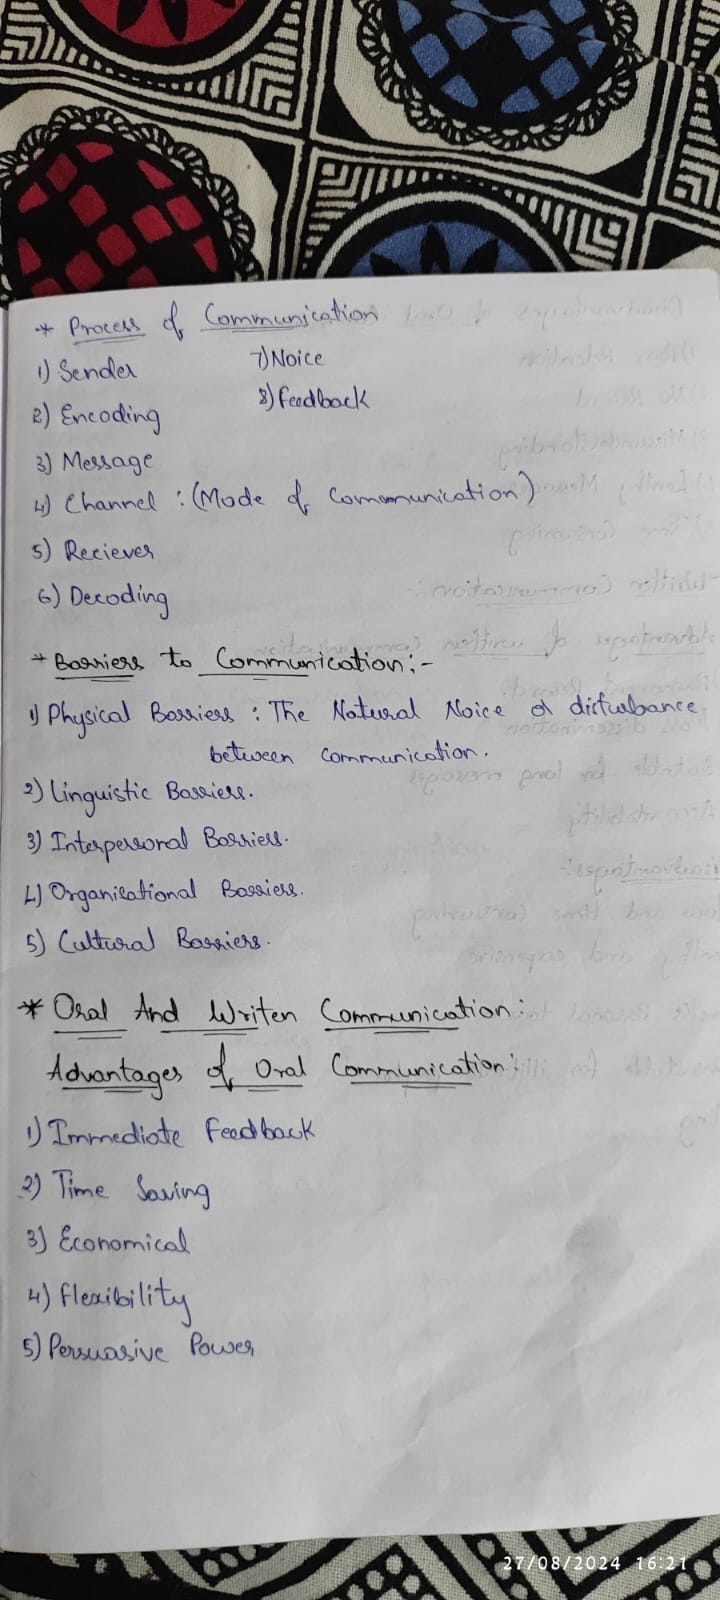 * Process of Communication
1) Sender 7) Noice
2) Encoding 8) Feedback
3) Message
4) Channel : (Mode of Communication)
5) Reciever
6) Decoding
* Barriers to Communication:-
1) Physical Barriers : The Natural Noice or disturbance
between communication.
2) Linguistic Barriers.
3) Interpersonal Barriers.
4) Organisational Barriers.
5) Cultural Barriers.
* Oral And Writen Communication:
Advantages of Oral Communication:
1) Immediate Feedback
2) Time Saving
3) Economical
4) Flexibility
5) Persuasive Power
27/08/2024 16:21